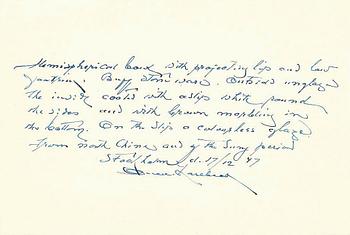 Hemispherical bowl with projecting lip and low
footring. Buff stoneware. Outside unglazed
the inside coated with a slip white round
the sides and with brown marbling in
the bottom. On the slip a colourless glaze
from north China and of the Sung period
Stockholm d. 17/12 47